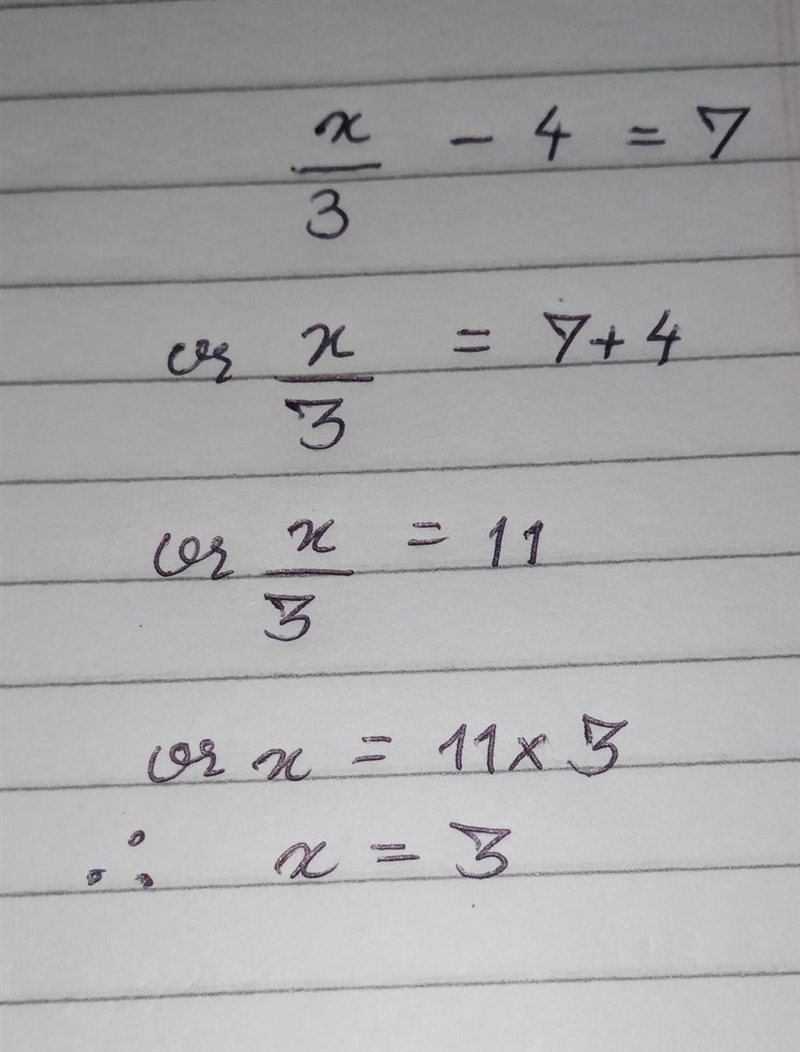 x/3 - 4 = 7
or x/3 = 7+4
or x/3 = 11
or x = 11 × 3
∴ x = 3